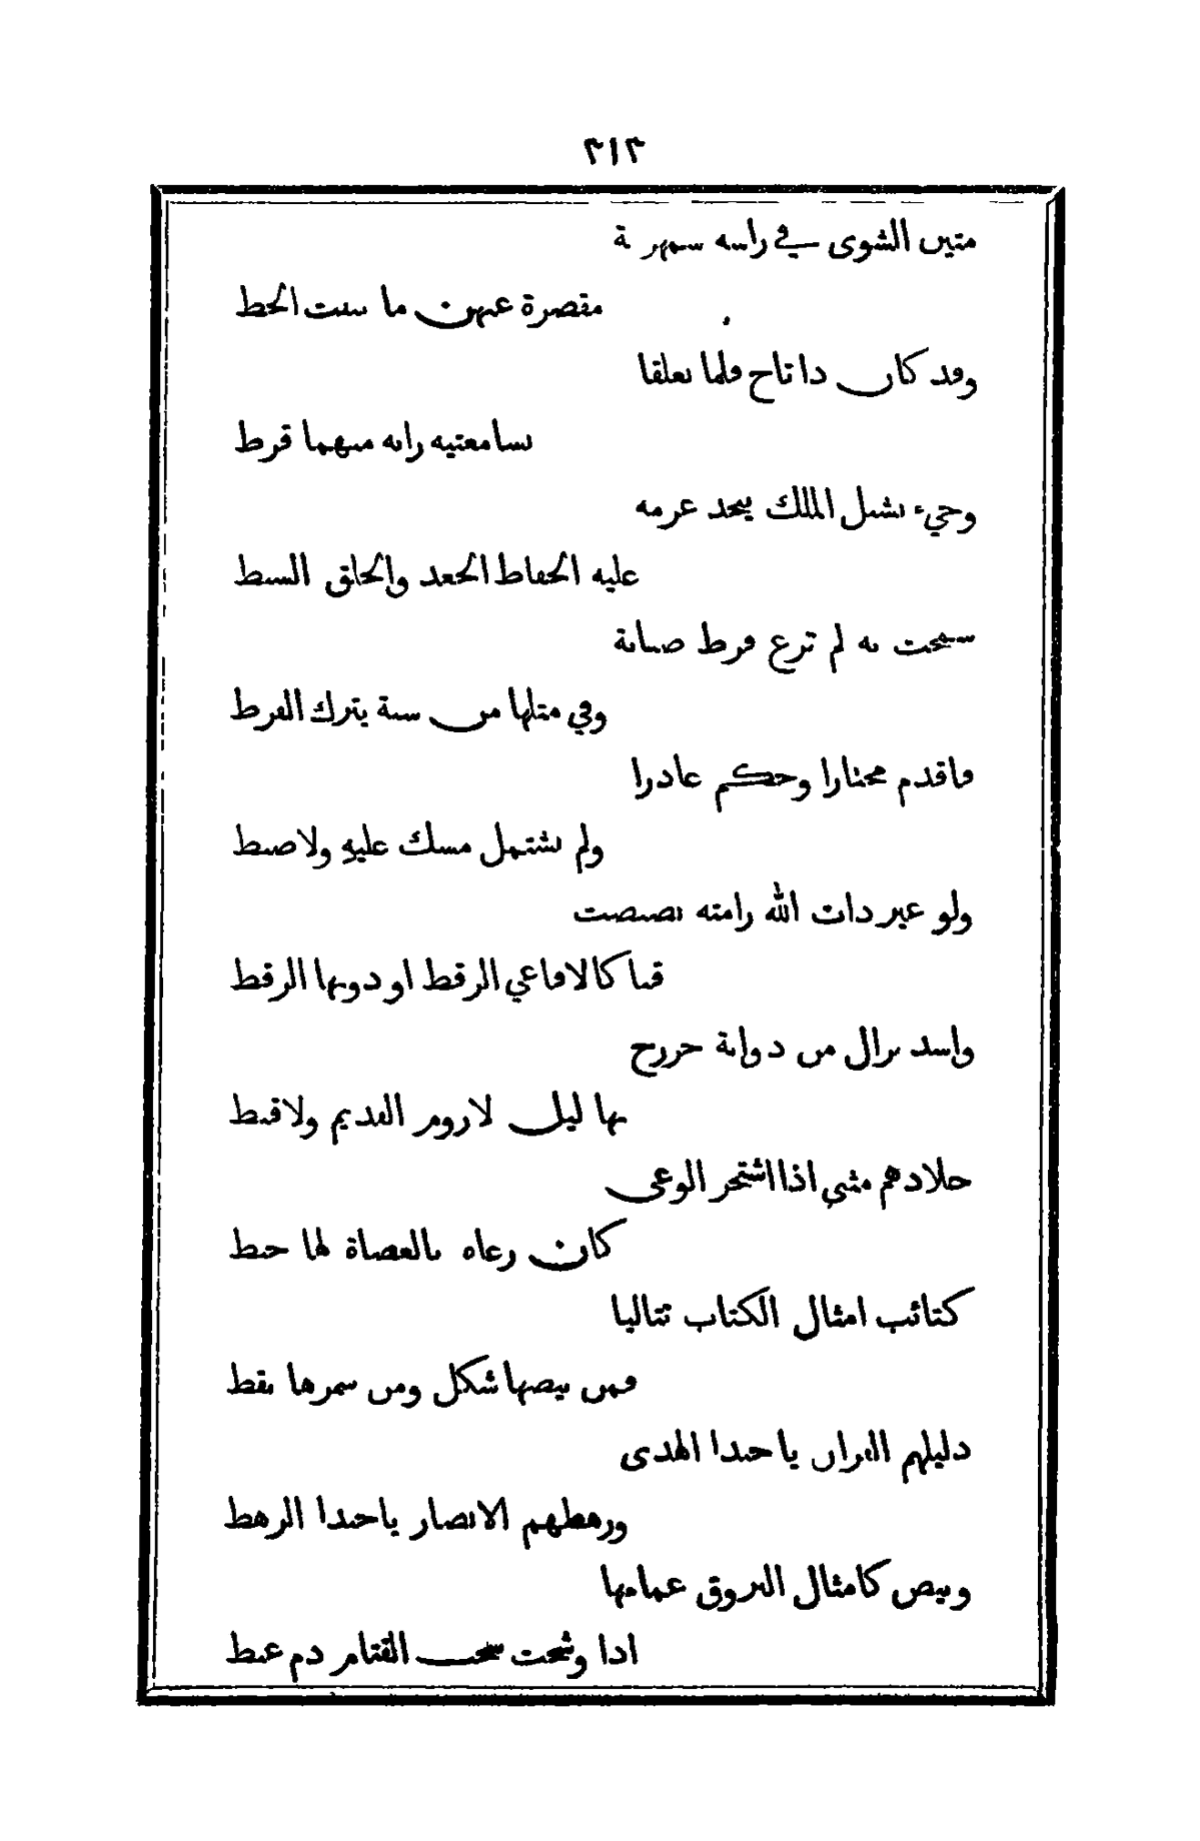 ٣١٣
متين الشوى في راسه سمهرية
مقصرة عنهن ما سنت الخط
وقد كان ذا تاج فلما تعلقا
بسامعتيه رانه منهما قرط
وجيء بشبل الملك ينجد عزمه
عليه الحفاظ الجعد والخلق السبط
سمحت به لم ترع فرط ضنانة
وفي مثلها من سنة يترك الفرط
فاقدم مختارا وحكم عاذرا
ولم يشتمل مسك عليه ولا ضبط
ولو غير ذات الله رامته نضنضت
قنا كالافاعي الرقط او دونها الرقط
واسد نزال من ذوابة خزرج
بها ليل لا روم القديم ولا قبط
جلادهم مثني اذا اشتجر الوغى
كان رعاه بالعصاة لها خبط
كتائب امثال الكتاب تتاليا
فمن بيضها شكل ومن سمرها نقط
دليلهم القران يا حبذا الهدى
ورهطهم الانصار يا حبذا الرهط
وبيض كامثال البروق غمامها
اذا وشحت سحب القتام دم عبط